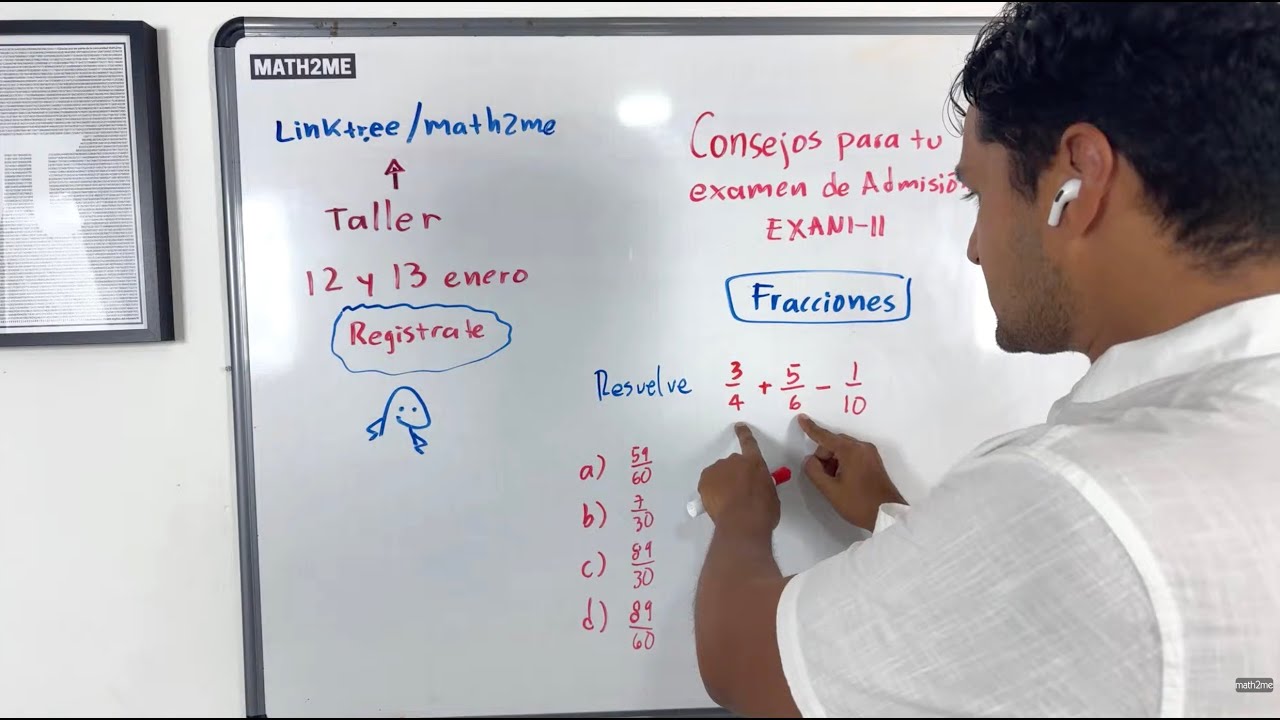 MATH2ME
Linktree/math2me
Taller
12 y 13 enero
Registrate
Consejos para tu
examen de Admisió
EXANI-II
Fracciones
Resuelve 3/4 + 5/6 - 1/10
a) 59/60
b) 7/30
c) 89/30
d) 89/60
math2me